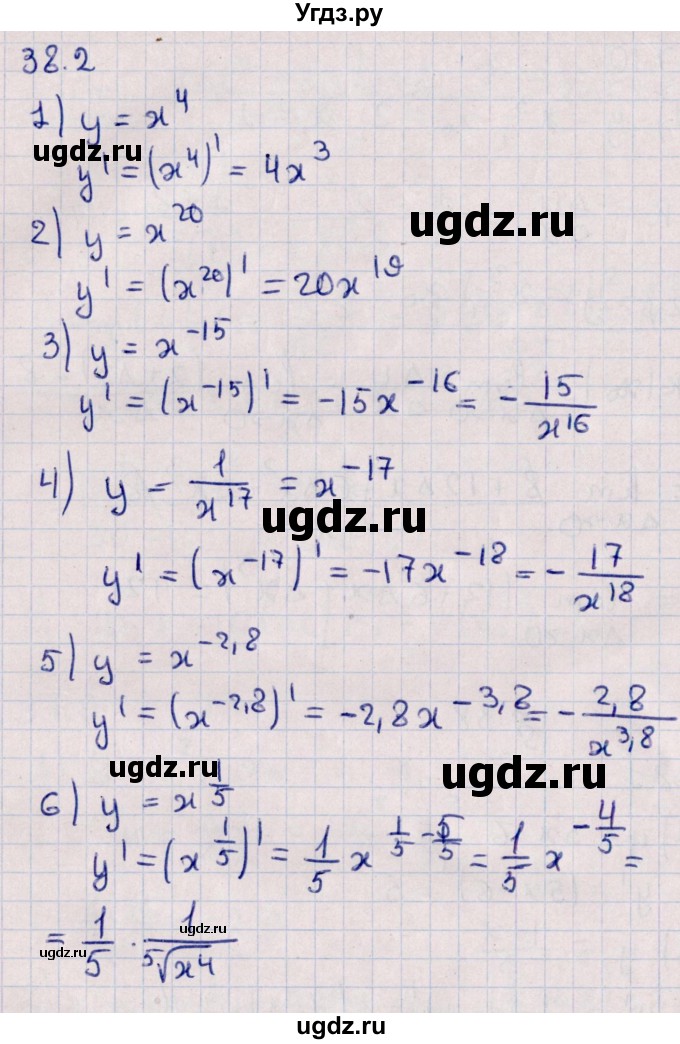 Угдз.ру
38.2
1) y = x^4
ugdz.ru
y' = (x^4)' = 4x^3
2) y = x^20
ugdz.ru
y' = (x^20)' = 20x^19
3) y = x^-15
y' = (x^-15)' = -15x^-16 = - 15/x^16
4) y = 1/x^17 = x^-17
ugdz.ru
y' = (x^-17)' = -17x^-18 = - 17/x^18
5) y = x^-2,8
y' = (x^-2,8)' = -2,8x^-3,8 = - 2,8/x^3,8
ugdz.ru
ugdz.ru
6) y = x^1/5
y' = (x^1/5)' = 1/5 x^1/5 - 5/5 = 1/5 x^-4/5 =
= 1/5 · 1/⁵√x^4
ugdz.ru
ugdz.ru
ugdz.ru